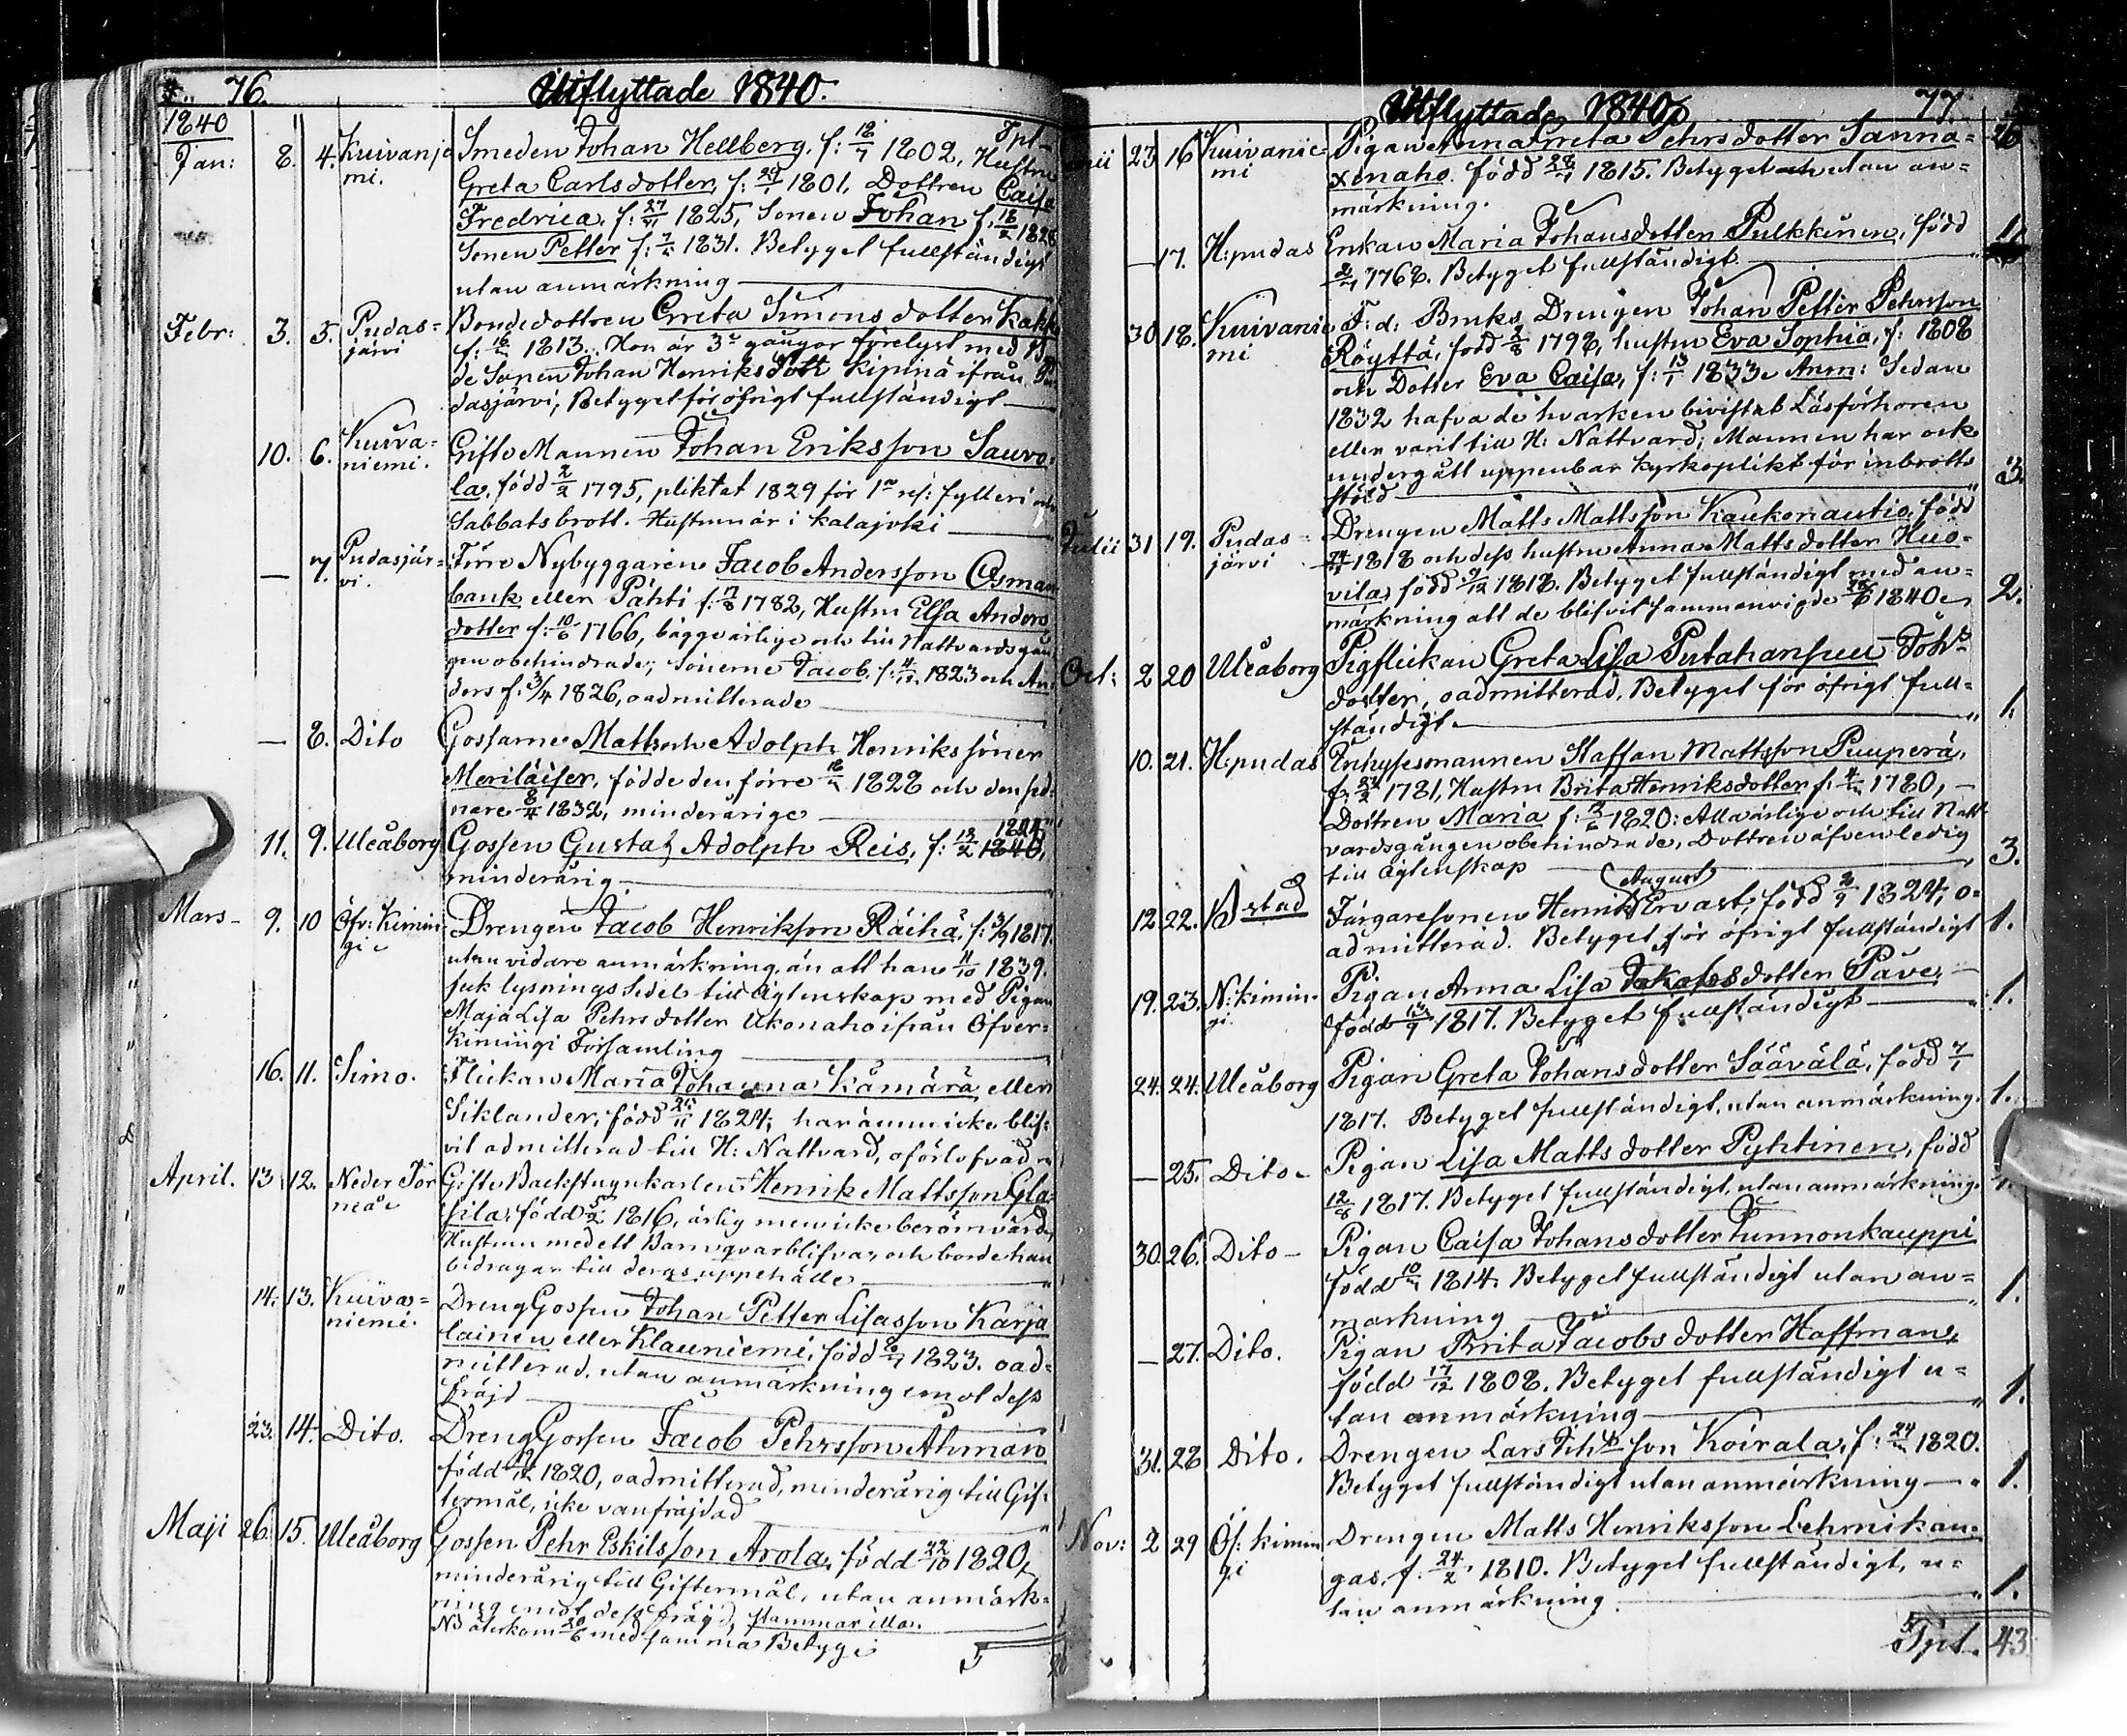 76.
Utflyttade 1840.
1840
Jan: 8. 4. Kuivanie Smeden Johan Hellberg, f: 18/7 1802, Hustru
mi. Greta Carlsdotter, f: 29/1 1801, Dottren Caisa
Fredrica, f: 27/11 1825, Sonen Johan f. 18/2 1828
Sonen Petter f: 1831. Betyget fullständigt
utan anmärkning
Febr: 3. 5. Pudas= Bondedottren Greta Simonsdotter Kakko
järvi f: 1813. Hon är 3e gångor förelyst med
de Sonen Johan Henriksson Kipinä ifrån Pu
dasjärvi, Betyget för öfrigt fullständigt
10. 6. Kuiva= Gifte Mannen Johan Eriksson Sauvo=
niemi. la, född 2/2 1795, pliktat 1829 för 1a res: fylleri och
Sabbatsbrott. Hustrun är i Kalajoki
— 7. Pudasjär= Förre Nybyggaren Jacob Andersson Osman
vi. bank eller Pähti f: 17/8 1782, Hustru Elsa Anders
dotter f: 10/6 1766, bägge ärlige och till Nattvardsgån
gen obehindrade; Sönerne Jacob f: 1823 och An
ders f: 3/4 1826, oadmitterade
— 8. Dito Gossarne Matts och Adolph Henriks söner
Meriläiser, födde den förre 1828 och den sed
nere 8/4 1832, minderårige
1844
11. 9. Uleåborg Gossen Gustaf Adolph Reis, f: 13/2 1840,
minderårig
Mars — 9. 10 Öfv: Kimin Drengen Jacob Henriksson Räihä, f: 3/9 1817.
gi utan vidare anmärkning, än att han 11/10 1839.
fick lysnings Sedel till Ägtenskap med Pigan
Maja Lisa Pehrsdotter Ukonaho ifrån Öfver=
Kimingi Församling
16. 11. Simo. Flickan Maria Johanna Kämärä eller
Siklander, född 25/11 1824; har ännu icke blif=
vit admitterad till H: Nattvard, oförlofvad
April. 13. 12. Neder Tor Gifte Backstugukarlen Henrik Mattsson Yla=
neå sila, född 5/2 1816, ärlig men icke berömvärd,
Hustrun med ett Barn qvarblifva, och borde han
bidraga till deras uppehälle
14. 13. Kuiva= DrengGossen Johan Petter Lisasson Karja
niemi. lainen eller Klauniemi, född 1823. oad=
mitterad, utan anmärkning emot dess
fräjd
23. 14. Dito. DrengGossen Jacob Pehrsson Åhman
född 1820, oadmitterad, minderårig till Gif=
termål, icke vanfräjdad
Maji 26. 15. Uleåborg Gossen Pehr Eskilsson Arola, född 22/10 1820,
minderårig till Giftermål, utan anmärk=
ning emot dess fräjd, stammar illa.
NB återkom 20/6 med samma Betyg
77.
Utflyttade 1840
23 16 Kuivanie= Pigan Anna Greta Pehrsdotter Sanna=
mi xenaho. född 28/7 1815. Betyget utan an=
märkning.
— 17. H:pudas Enkan Maria Johansdotter Pulkkinen, född
1768. Betyget fullständigt 1.
30 18. Kuivanie F: d: Bruks Drengen Johan Petter Pehrsson
mi Röyttä, född 2/8 1798, hustru Eva Sophia, f: 1808
och Dotter Eva Caisa, f: 13/1 1833. Anm: Sedan
1832 hafva de hvarken bivistat Läsförhören
eller varit till H: Nattvard; Mannen har ock
undergått uppenbar kyrkoplikt för inbrotts
stöld 3.
Julii 31 19. Pudas= Drengen Matts Mattsson Kaukonautio, född
järvi 1818 och dess hustru Anna Mattsdotter Huo=
vila, född 9/12 1818. Betyget fullständigt med an=
märkning att de blifvit sammanvigde 1840 2.
Oct: 2 20 Uleåborg Pigflickan Greta Lisa Putahansuu Joh:s
dotter, oadmitterad, Betyget för öfrigt full=
ständigt. 1.
10. 21. H:pudas Enkysesmannen Staffan Mattsson Puuperä,
f: 1781, Hustru Brita Henriksdotter f: 1780,
Dottren Maria f: 3/6 1820: Alla ärlige och till Natt
vardsgången obehindrade, Dottren äfven ledig
till ägtenskap 3.
August
12 22. Bstad Färgaresonen Henrik Ervast, född 2/9 1824, o=
admitterad. Betyget för öfrigt fullständigt 1.
19. 23. N:kimin= Pigan Anna Lisa Jakobsdotter Pave,
gi. född 13/9 1817. Betyget fullständigt 1.
24. 24. Uleåborg Pigan Greta Johansdotter Säävälä, född 7/1
1817. Betyget fullständigt, utan anmärkning. 1.
— 25. Dito Pigan Lisa Mattsdotter Pyhtinen, född
12/8 1817. Betyget fullständigt, utan anmärkning. 1.
30. 26. Dito — Pigan Caisa Johansdotter Junnonkauppi
född 1814. Betyget fullständigt utan an=
märkning 1.
— 27. Dito. Pigan Brita Jacobsdotter Haffman,
född 17/12 1808. Betyget fullständigt u=
tan anmärkning 1.
31. 28 Dito. Drengen Lars son Koirala, f: 1820.
Betyget fullständigt utan anmärkning 1.
Nov: 2 29 Öf: kimin Drengen Matts Henriksson Lehmikan=
gi gas, f. 24/2 1810. Betyget fullständigt, u=
tan anmärkning. 1.
Tpt. 43